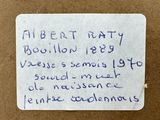 ALBERT RATY
Bouillon 1889
Vresse s Semois 1970
sourd-muet
de naissance
peintre ardennais